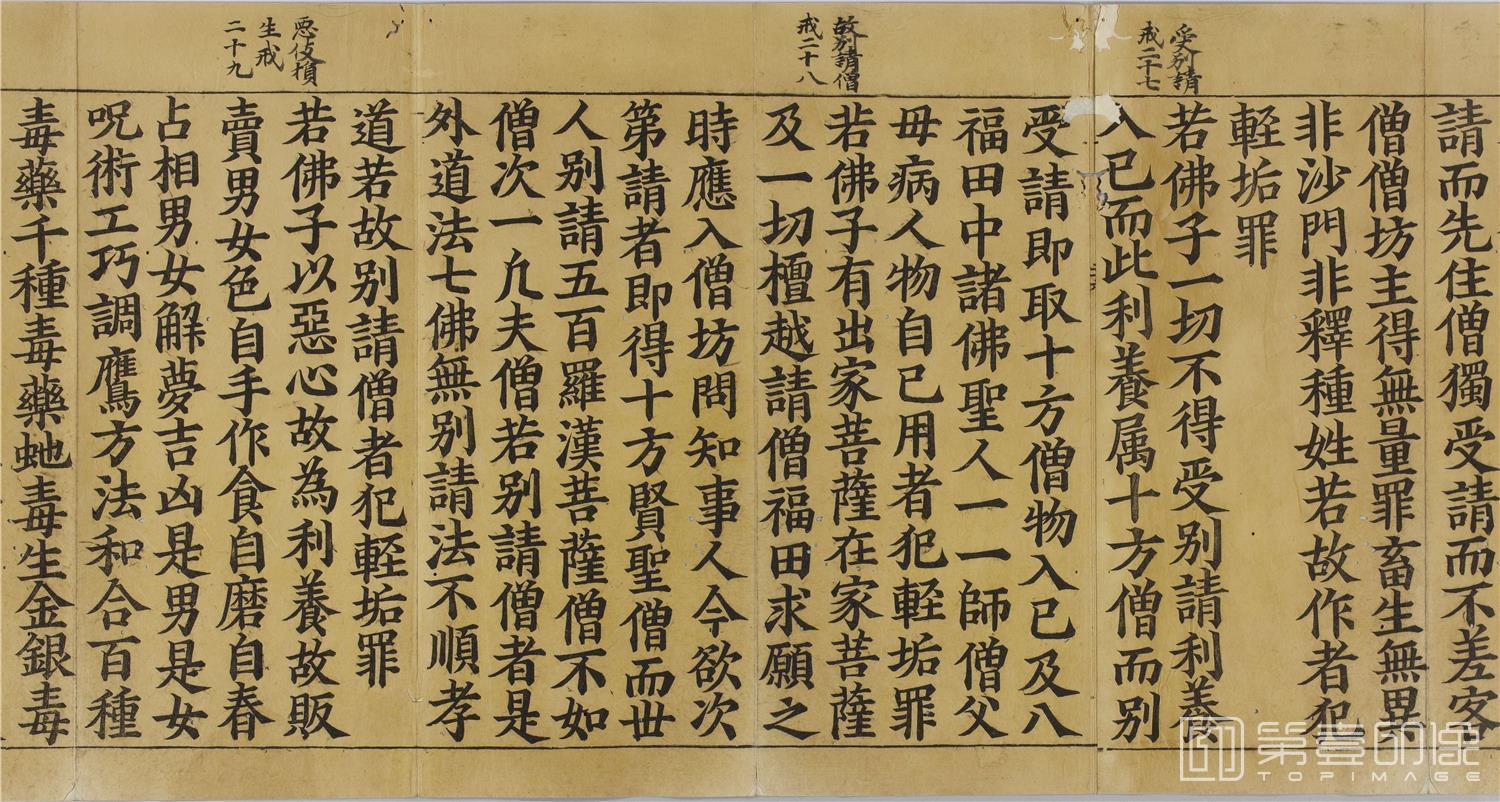 請而先住僧獨受請而不差客
僧僧坊主得無量罪畜生無異
非沙門非釋種姓若故作者犯
軽垢罪
受别請
戒二十七
若佛子一切不得受别請利養
入已而此利養属十方僧而别
受請即取十方僧物入已及八
福田中諸佛聖人一一師僧父
毋病人物自已用者犯軽垢罪
若佛子有出家菩薩在家菩薩
故别請僧
戒二十八
及一切檀越請僧福田求願之
時應入僧坊問知事人今欲次
第請者即得十方賢聖僧而世
人别請五百羅漢菩薩僧不如
僧次一凢夫僧若别請僧者是
外道法七佛無别請法不順孝
道若故别請僧者犯軽垢罪
惡伎損
生戒
二十九
若佛子以惡心故為利養故販
賣男女色自手作食自磨自舂
占相男女解夢吉凶是男是女
呪術工巧調鷹方法和合百種
毒藥千種毒藥虵毒生金銀毒
第壹印像
TOPIMAGE